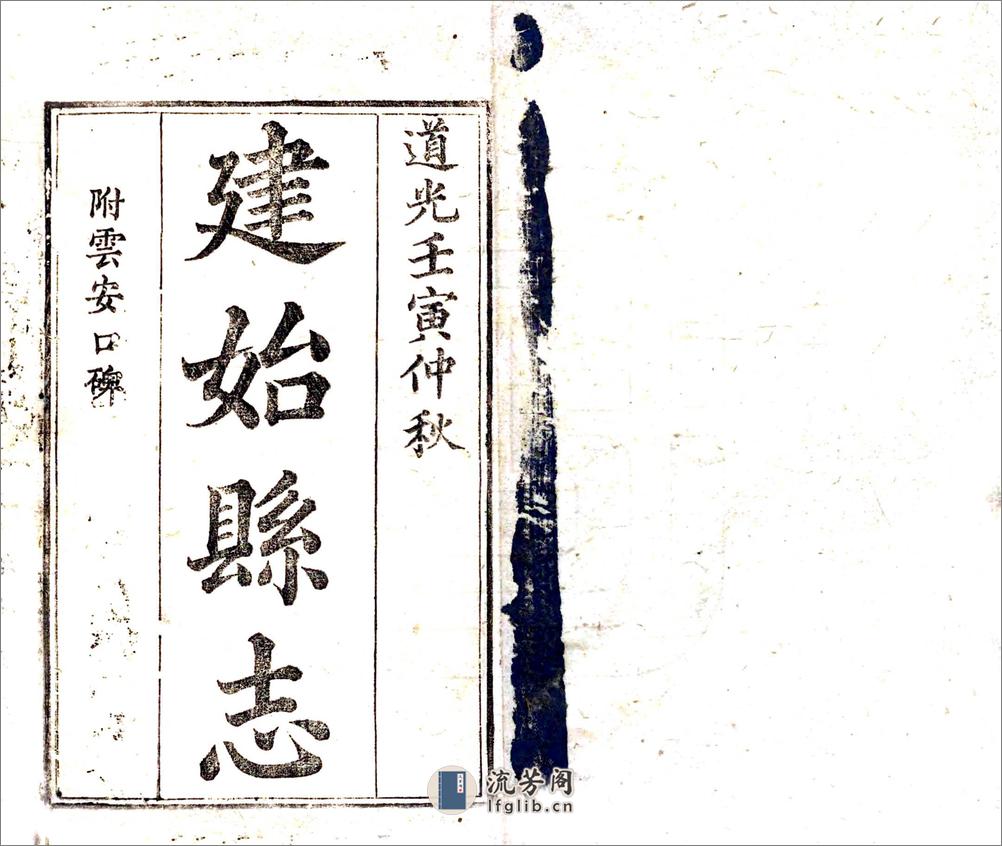 道光壬寅仲秋
建始縣志
附雲安口碑
流芳阁
lfglib.cn